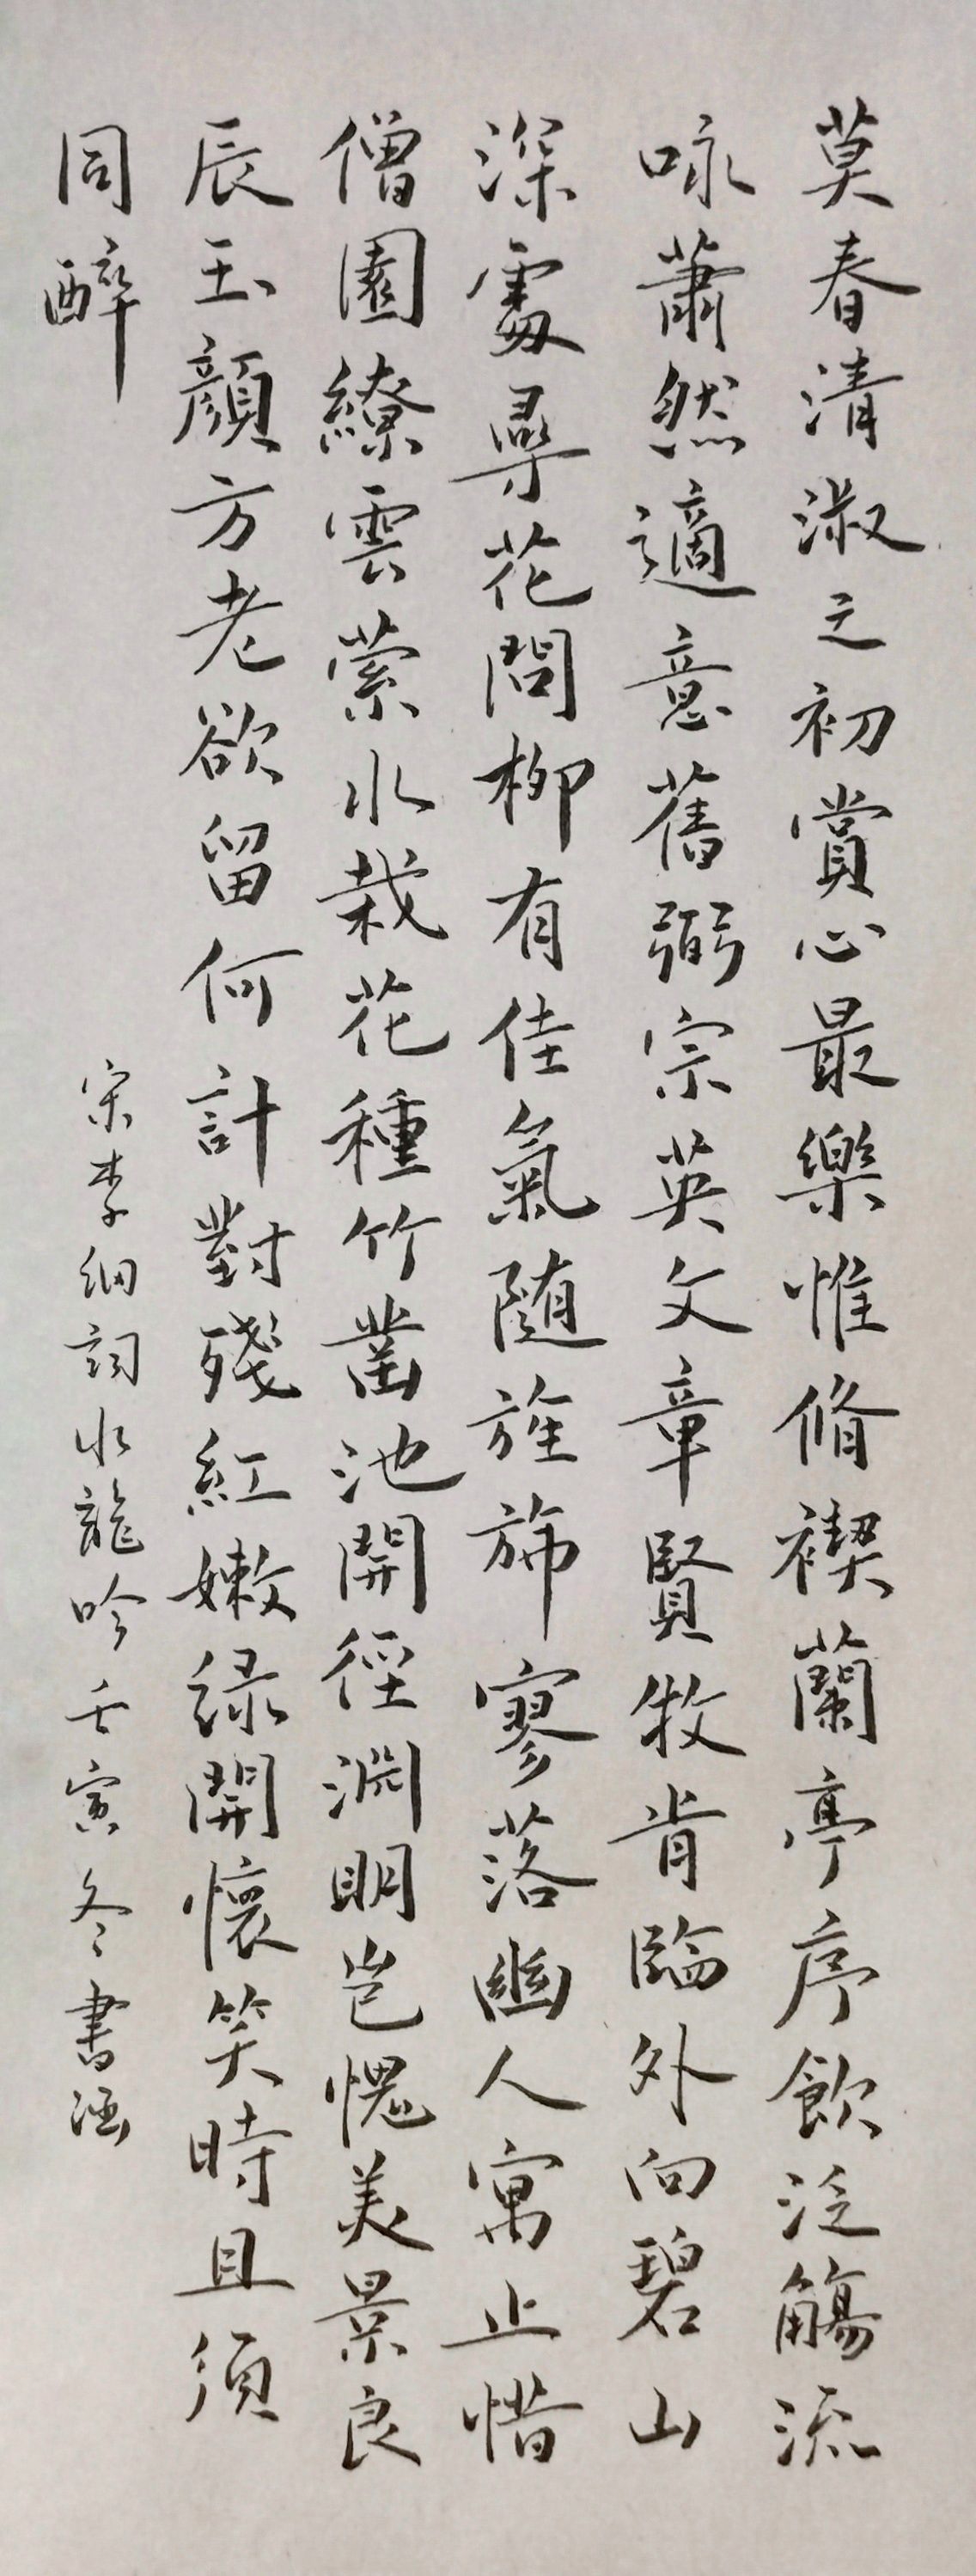 莫春清淑之初賞心最樂惟脩禊蘭亭序飲泛觴流
咏蕭然適意舊弼宗英文章賢牧肯臨外向碧山
深處尋花問柳有佳氣随旌斾寥落幽人寓止惜
僧園繚雲縈水栽花種竹凿池開徑淵明岂愧美景良
辰玉顏方老欲留何計對殘紅嫩緑開懷笑時且須
同醉
宋李綱詞水龍吟壬寅冬書涵